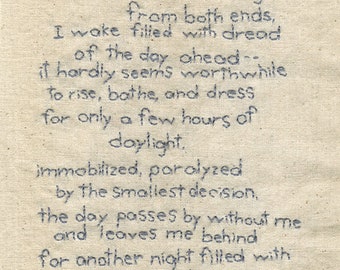 from both ends,
I wake filled with dread
of the day ahead--
it hardly seems worthwhile
to rise, bathe, and dress
for only a few hours of
daylight.
immobilized, paralyzed
by the smallest decision,
the day passes by without me
and leaves me behind
for another night filled with